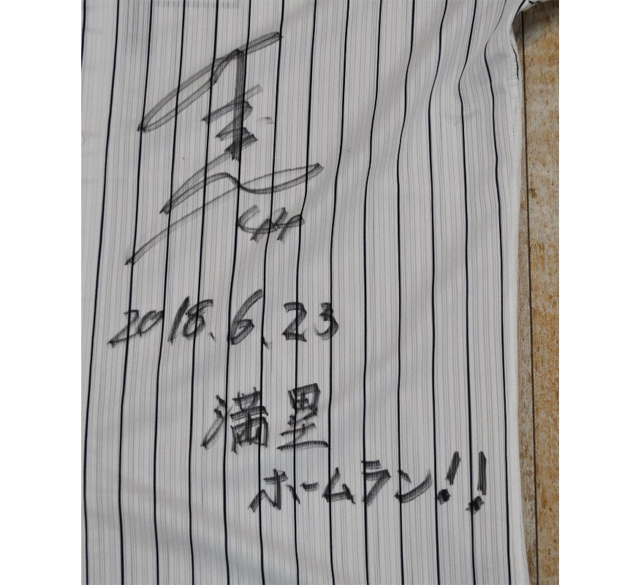 44
2018.6.23
満塁
ホームラン!!